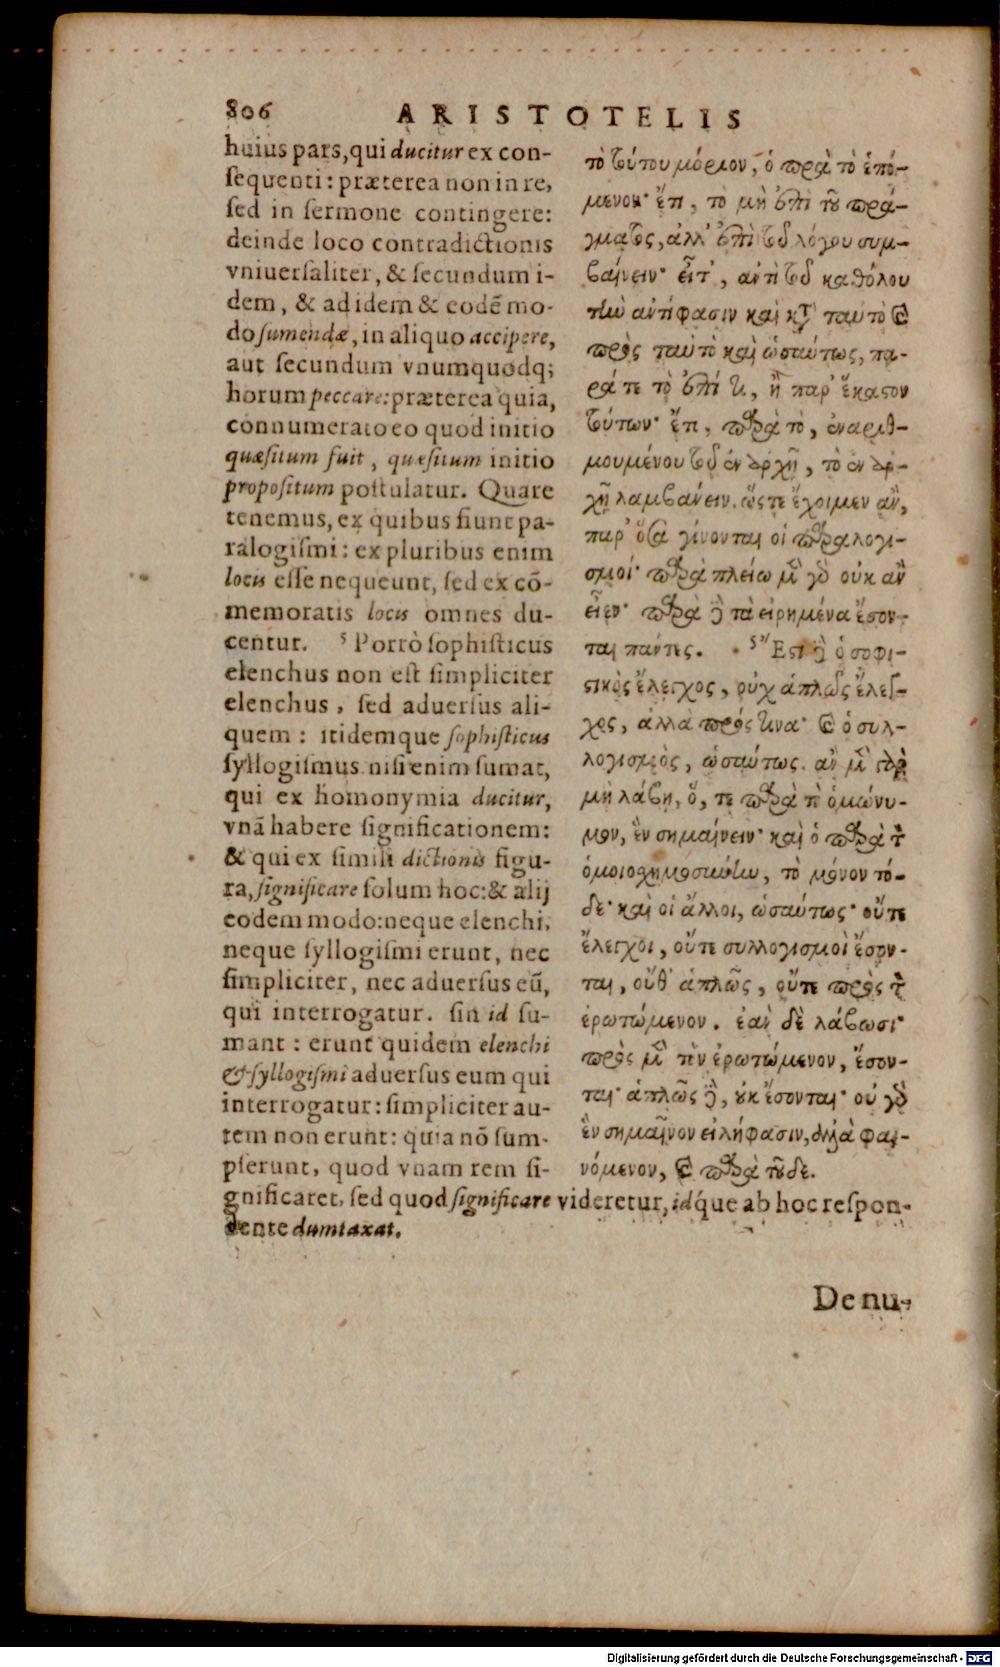 806 ARISTOTELIS
huius pars, qui ducitur ex con-
sequenti: præterea non in re,
sed in sermone contingere:
deinde loco contradictionis
vniuersaliter, & secundum i-
dem, & ad idem & eodē mo-
do sumendæ, in aliquo accipere,
aut secundum vnumquodq;
horum peccare: præterea quia,
connumerato eo quod initio
quæsitum fuit, quæsitum initio
propositum postulatur. Quare
tenemus, ex quibus fiunt pa-
ralogismi: ex pluribus enim
locis esse nequeunt, sed ex cō-
memoratis locis omnes du-
centur. 5 Porrò sophisticus
elenchus non est simpliciter
elenchus, sed aduersus ali-
quem: itidemque sophisticus
syllogismus. nisi enim sumat,
qui ex homonymia ducitur,
vnā habere significationem:
& qui ex simili dictionis figu-
ra, significare solum hoc: & alij
eodem modo: neque elenchi,
neque syllogismi erunt, nec
simpliciter, nec aduersus eū,
qui interrogatur. sin id su-
mant: erunt quidem elenchi
& syllogismi aduersus eum qui
interrogatur: simpliciter au-
tem non erunt: quia nō sum-
pserunt, quod vnam rem si-
gnificaret, sed quod significare videretur, idq́ue ab hoc respon-
dente dumtaxat.
τὸ τούτου μόριον, ὁ παρὰ τὸ ἑπό-
μενον· ἔτι, τὸ μὴ ἐπὶ τοῦ πρά-
γματος, ἀλλ' ἐπὶ τοῦ λόγου συμ-
βαίνειν· εἶτ', ἀντὶ τοῦ καθόλου
τὴν ἀντίφασιν καὶ κατὰ ταυτὸ καὶ
πρὸς ταυτὸ καὶ ὡσαύτως, πα-
ρά τε τὸ ἐπί τι, ἢ παρ' ἕκαστον
τούτων· ἔτι, παρὰ τὸ, ἐναριθ-
μουμένου τοῦ ἐν ἀρχῇ, τὸ ἐν ἀρ-
χῇ λαμβάνειν. ὥστε ἔχοιμεν ἂν,
παρ' ὅσα γίνονται οἱ παραλογι-
σμοί· παρὰ πλείω μὲν γὰρ οὐκ ἂν
εἶεν· παρὰ δὲ τὰ εἰρημένα ἔσον-
ται πάντες. 5 Ἔστι δὲ ὁ σοφι-
στικὸς ἔλεγχος, οὐχ ἁπλῶς ἔλεγ-
χος, ἀλλὰ πρός τινα· καὶ ὁ συλ-
λογισμὸς, ὡσαύτως. ἂν μὲν γὰρ
μὴ λάβῃ, ὅ, τε παρὰ τὸ ὁμώνυ-
μον, ἓν σημαίνειν· καὶ ὁ παρὰ τὴν
ὁμοιοσχημοσύνην, τὸ μόνον τό-
δε· καὶ οἱ ἄλλοι, ὡσαύτως· οὔτε
ἔλεγχοι, οὔτε συλλογισμοὶ ἔσον-
ται, οὔθ' ἁπλῶς, οὔτε πρὸς τὸν
ἐρωτώμενον. ἐὰν δὲ λάβωσι·
πρὸς μὲν τὸν ἐρωτώμενον, ἔσον-
ται· ἁπλῶς δὲ, οὐκ ἔσονται· οὐ γὰρ
ἓν σημαῖνον εἰλήφασιν, ἀλλὰ φαι-
νόμενον, καὶ παρὰ τοῦδε.
De nu-
Digitalisierung gefördert durch die Deutsche Forschungsgemeinschaft - DFG